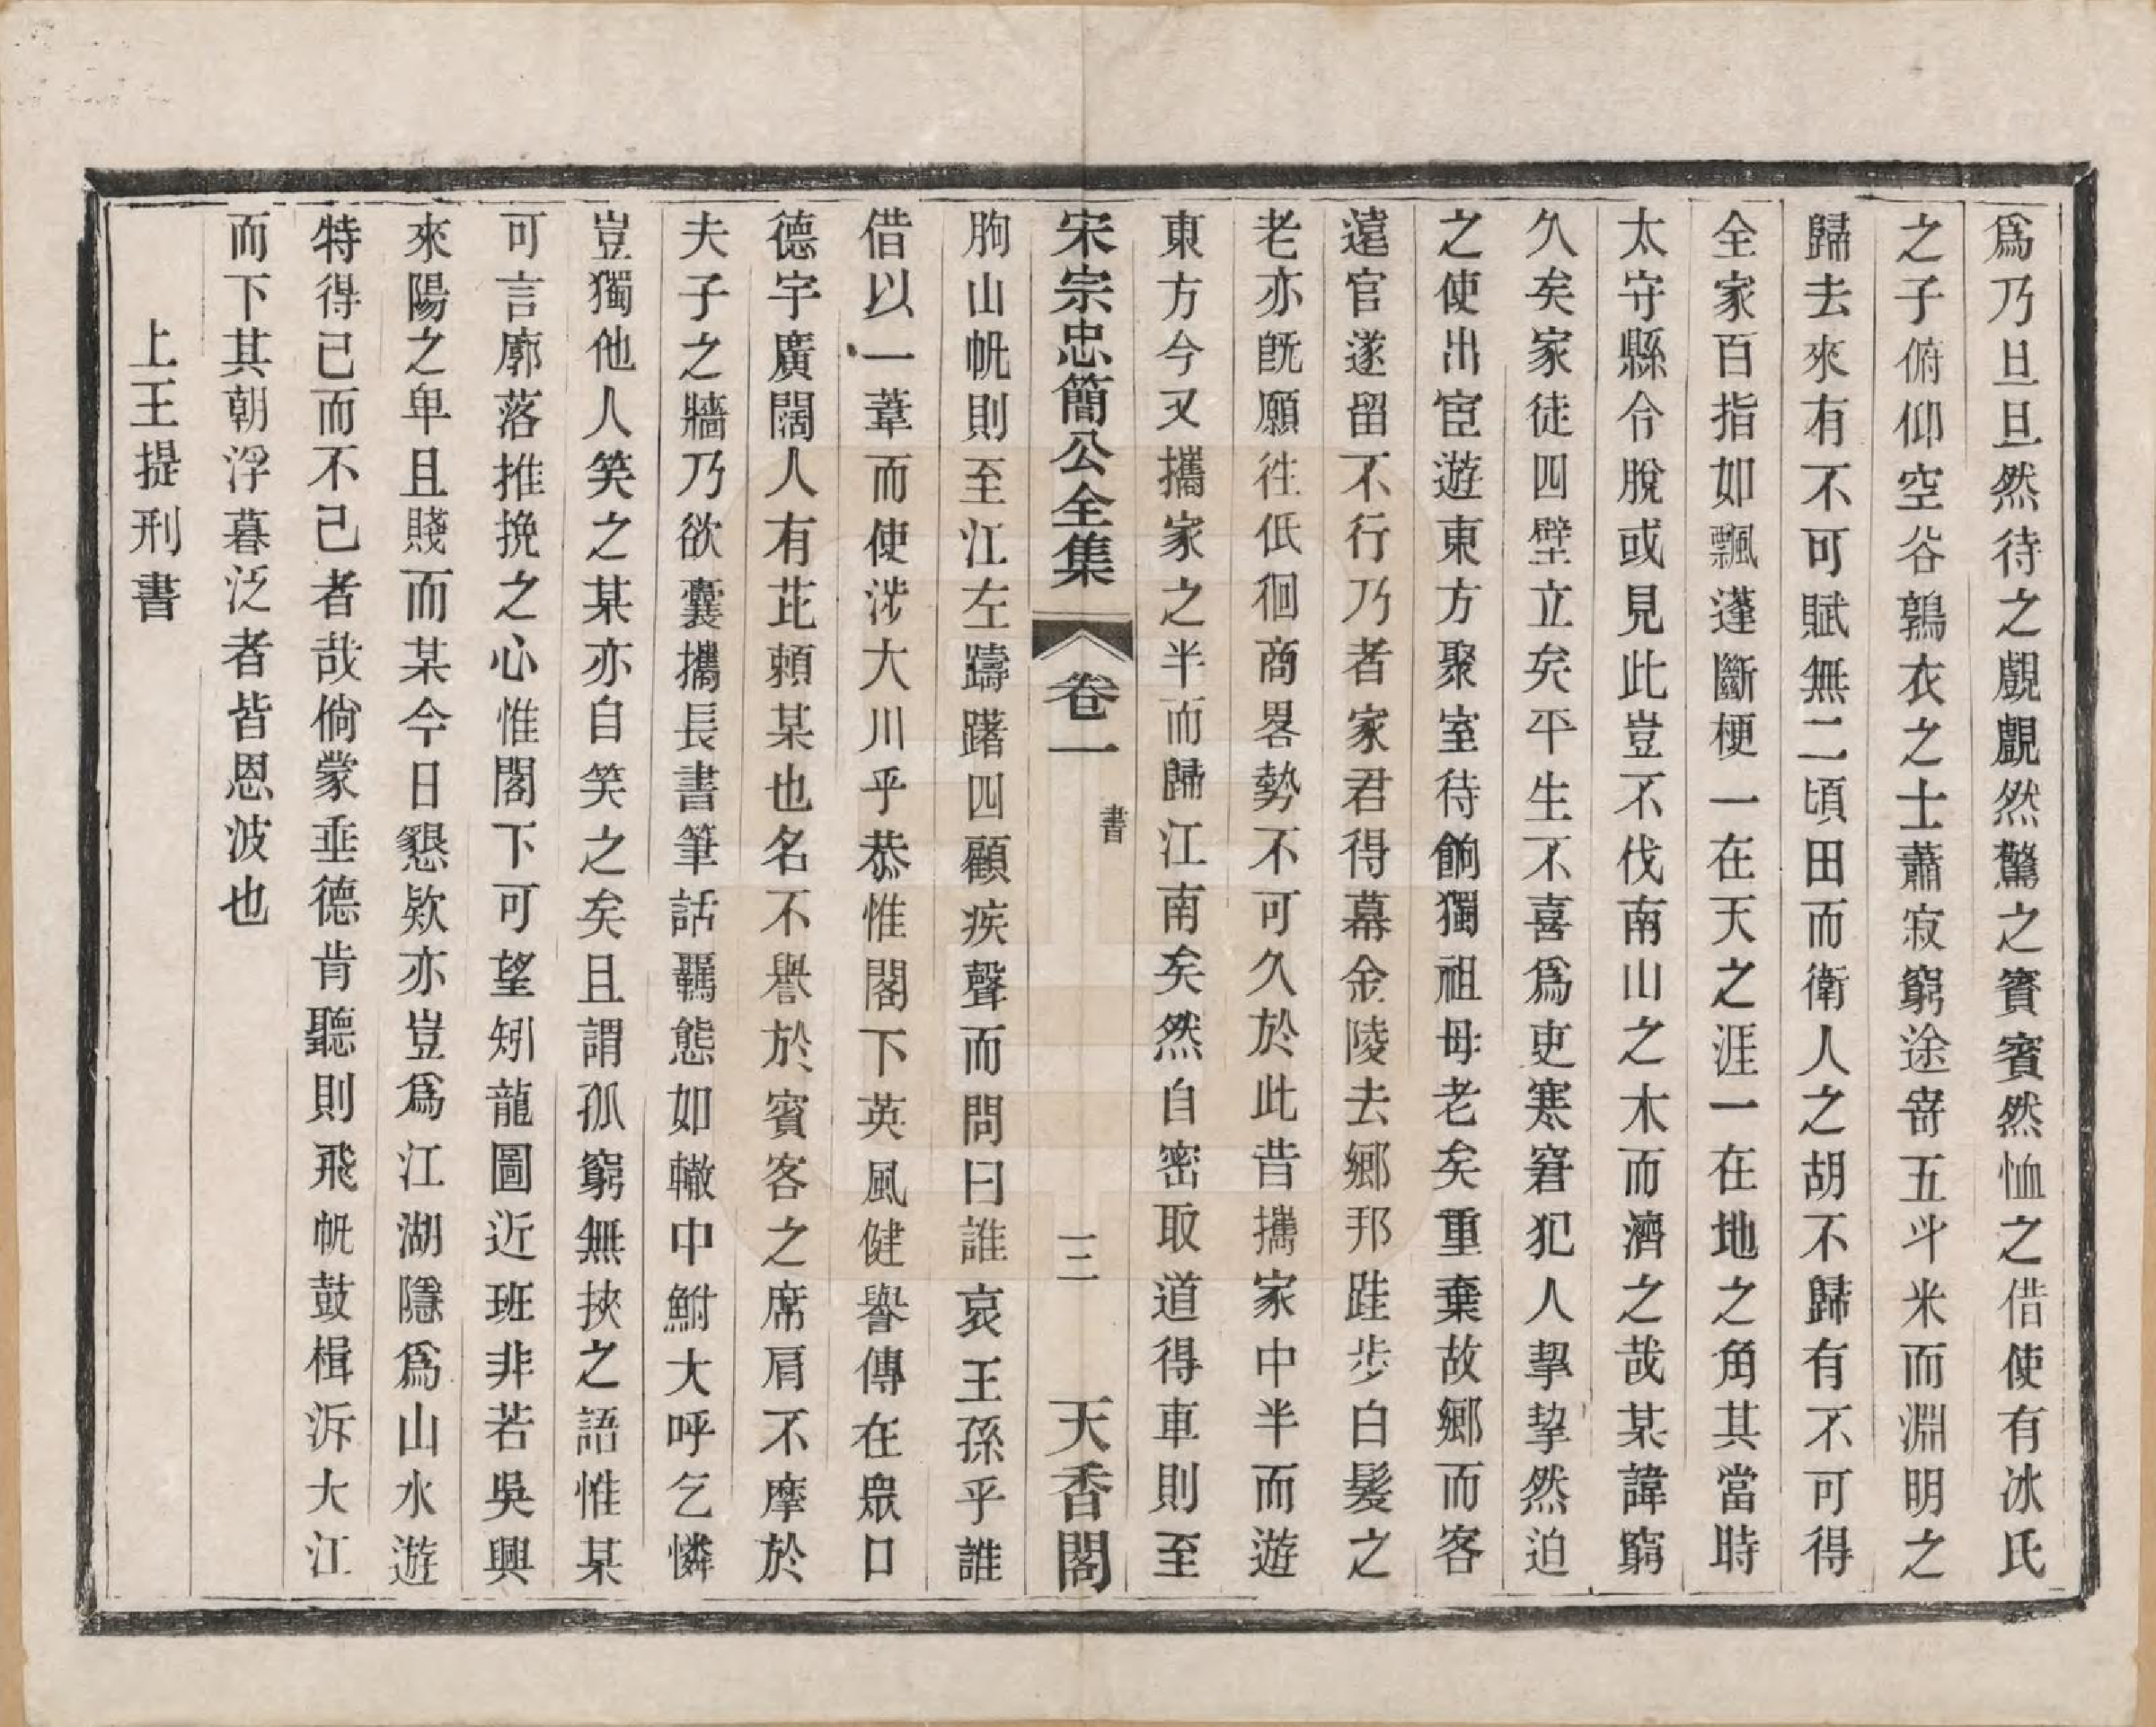 爲乃旦旦然待之覷覷然驚之賓賓然恤之借使有冰氏
之子俯仰空谷鶉衣之士蕭寂窮途嵜五斗米而淵明之
歸去來有不可賦無二頃田而衛人之胡不歸有不可得
全家百指如飄蓬斷梗一在天之涯一在地之角其當時
太守縣令脫或見此豈不伐南山之木而濟之哉某諱窮
久矣家徒四壁立矣平生不喜爲吏寒窘犯人挈挈然迫
之使出宦遊東方聚室待餉獨祖母老矣重棄故鄉而客
遠官遂留不行乃者家君得幕金陵去鄉邦跬步白髮之
老亦旣願徃低徊商畧勢不可久於此昔攜家中半而遊
東方今又攜家之半而歸江南矣然自密取道得車則至
宋宗忠簡公全集 卷一 書 三 天香閣
朐山帆則至江左躊躇四顧疾聲而問曰誰哀王孫乎誰
借以一葦而使涉大川乎恭惟閣下英風健譽傳在眾口
德宇廣闊人有茈賴某也名不譽於賓客之席肩不摩於
夫子之牆乃欲囊攜長書筆話羈態如轍中鮒大呼乞憐
豈獨他人笑之某亦自笑之矣且謂孤窮無挾之語惟某
可言廓落推挽之心惟閣下可望矧龍圖近班非若吳興
來陽之卑且賤而某今日懇欵亦豈爲江湖隱爲山水遊
特得已而不已者哉倘蒙垂德肯聽則飛帆鼓楫泝大江
而下其朝浮暮泛者皆恩波也
上王提刑書